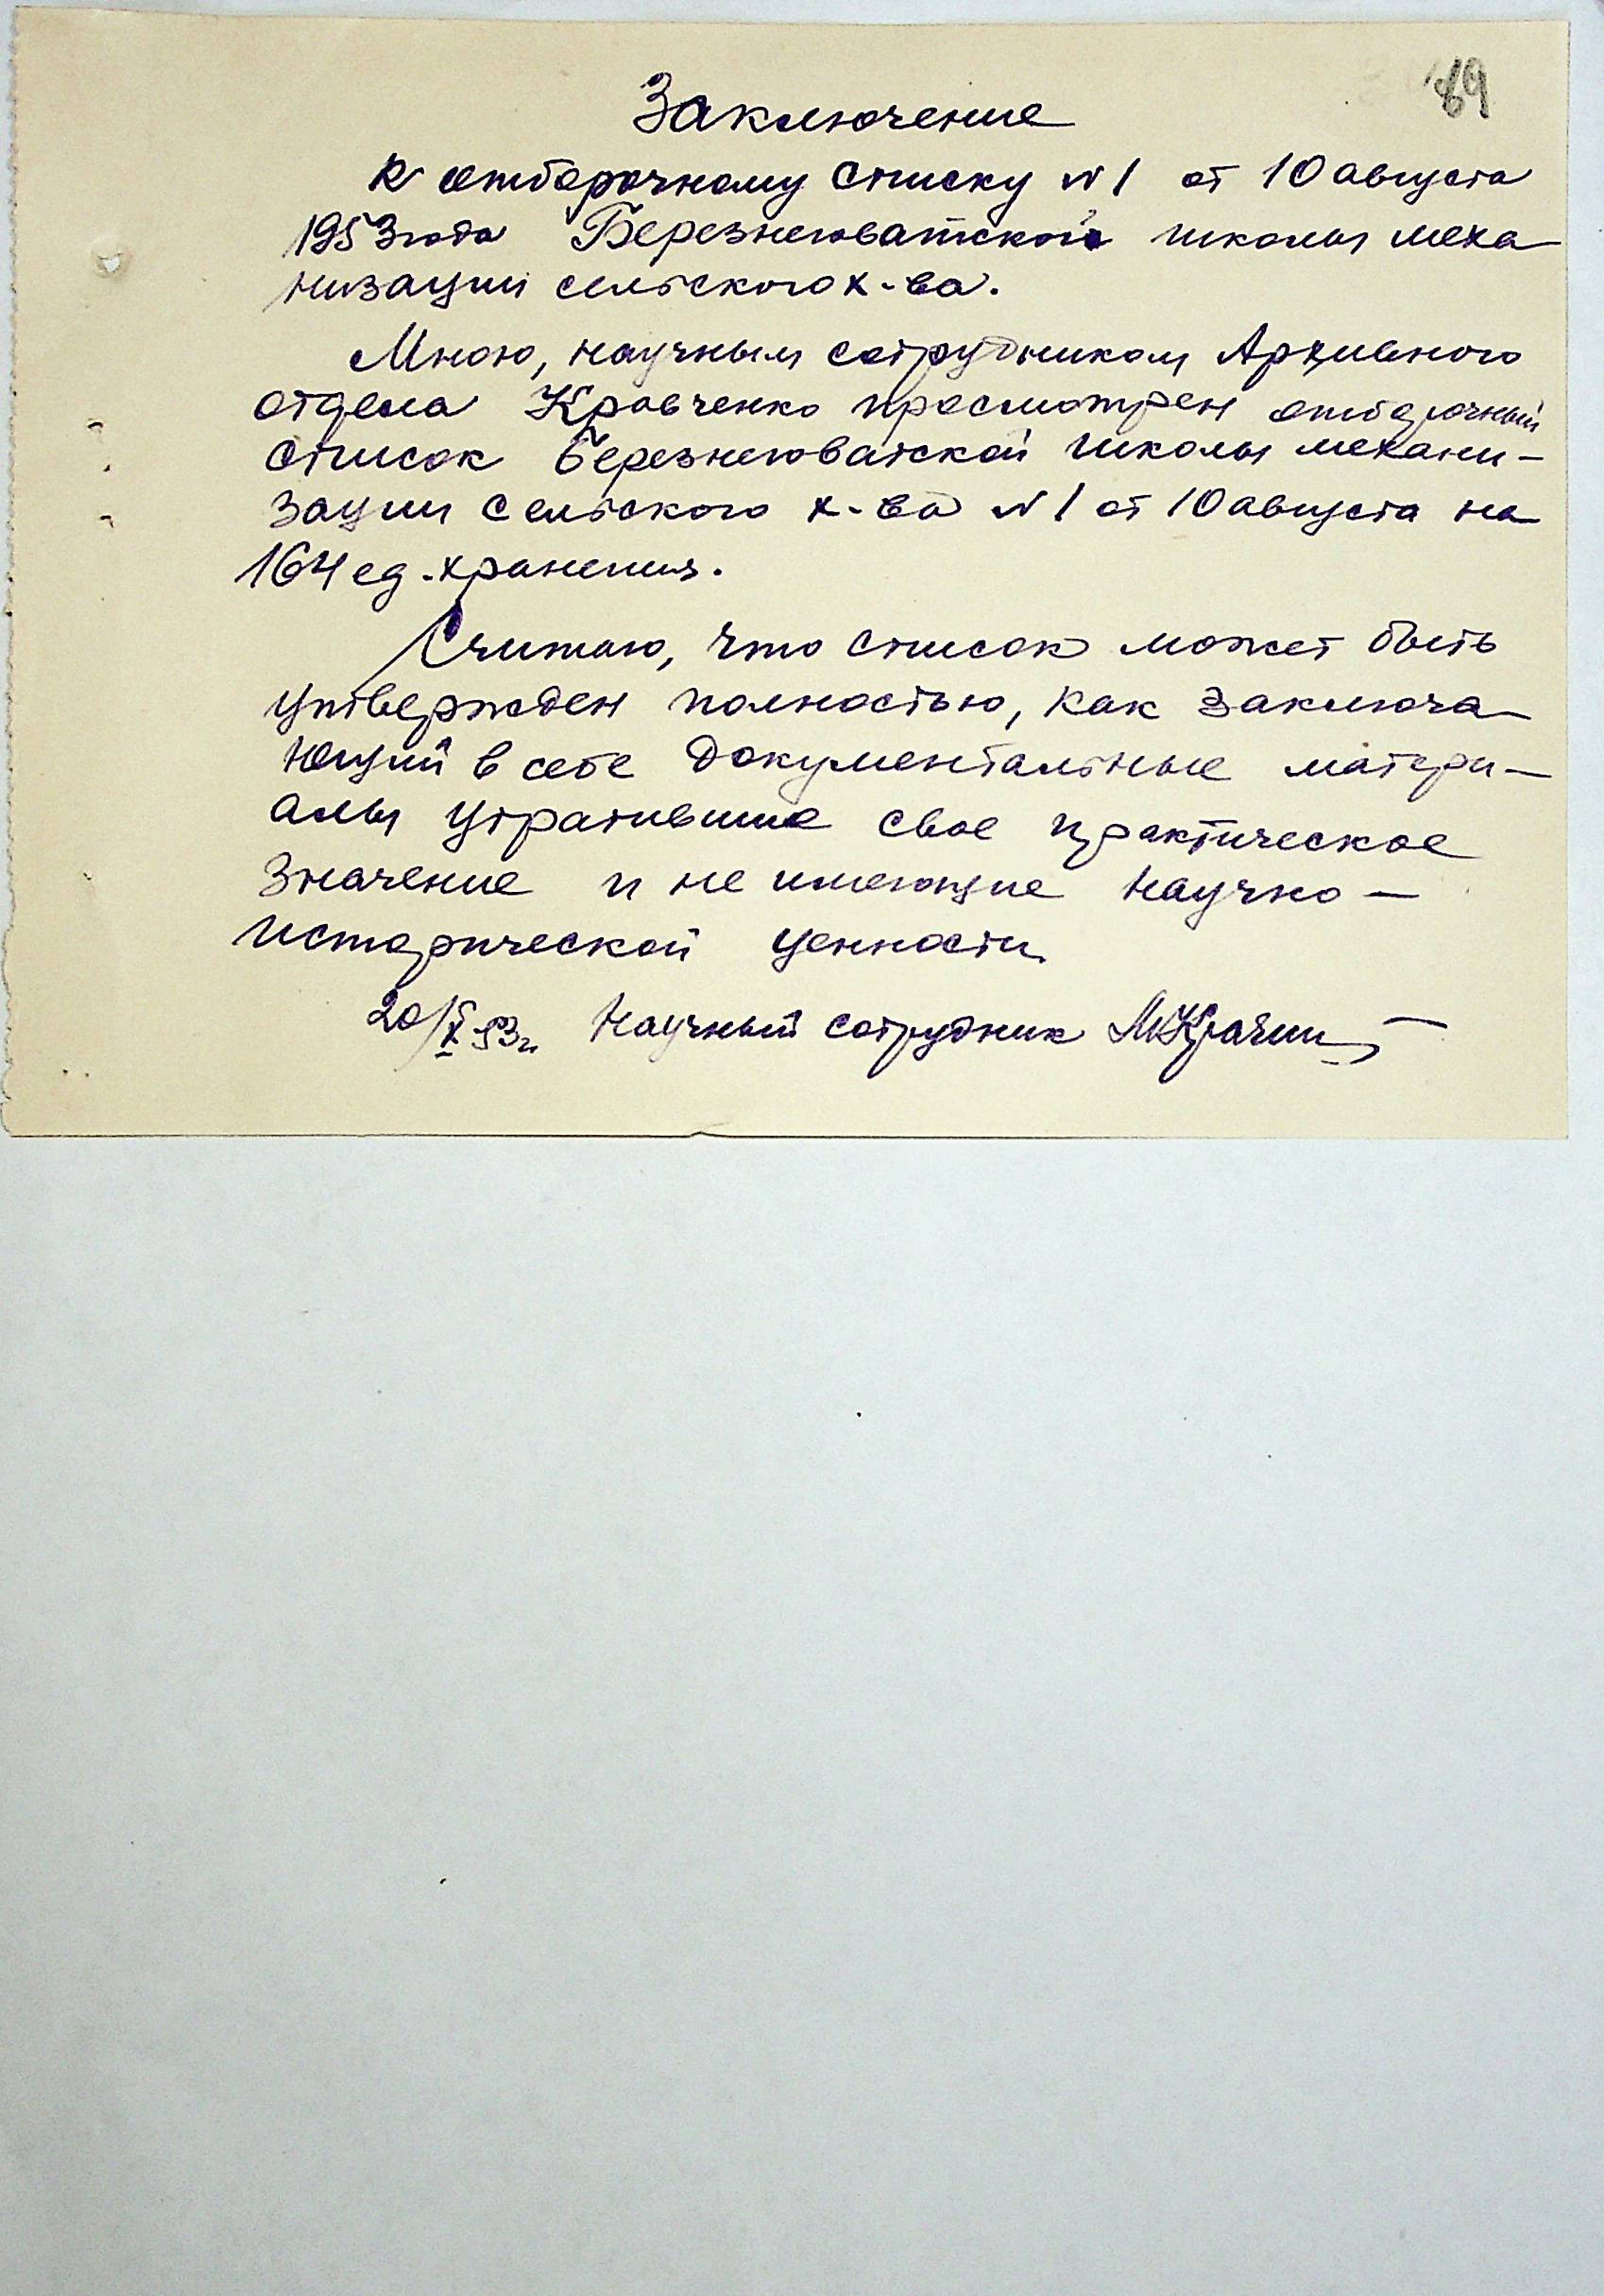 89
Заключение
к отборочному списку № 1 от 10 августа
1953 года Березнеговатской школы меха
низации сельского х-ва.
Мною, научным сотрудником Архивного
отдела Кравченко просмотрен отборочный
список Березнеговатской школы механи-
зации сельского х-ва № 1 от 10 августа на
164 ед. хранения.
Считаю, что список может быть
утвержден полностью, как заключа
ющий в себе документальные матери-
алы утратившие свое практическое
значение и не имеющие научно-
исторической ценности
20/X 53г. Научный сотрудник